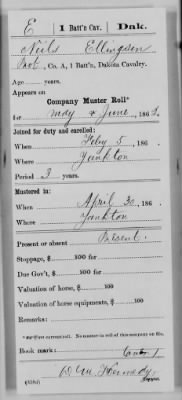 E 1 Batt'n Cav. Dak.
Neils Ellingsen
Pvt., Co. A, 1 Batt'n, Dakota Cavalry.
Age years.
Appears on
Company Muster Roll*
for May & June, 186
Joined for duty and enrolled:
When Feby 5, 186
Where Yankton
Period 3 years.
Mustered in:
When April 30, 186
Where Yankton
Present or absent Present.
Stoppage, $ 100 for
Due Gov't, $ 100 for
Valuation of horse, $ 100
Valuation of horse equipments, $ 100
Remarks:
Book mark:
Wm Kennedy
Copyist.